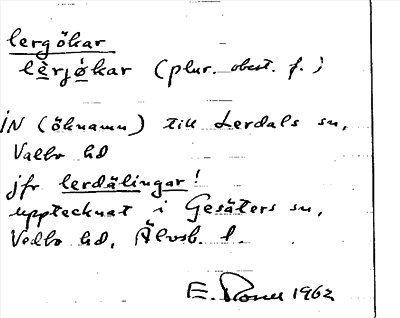 lergökar
lèrjókar (plur. obest. f.)
IN (öknamn) till Lerdals sn,
Valbo hd
jfr lerdälingar!
upptecknat i Gesäters sn,
Vedbo hd, Älvsb. l.
E. 1962